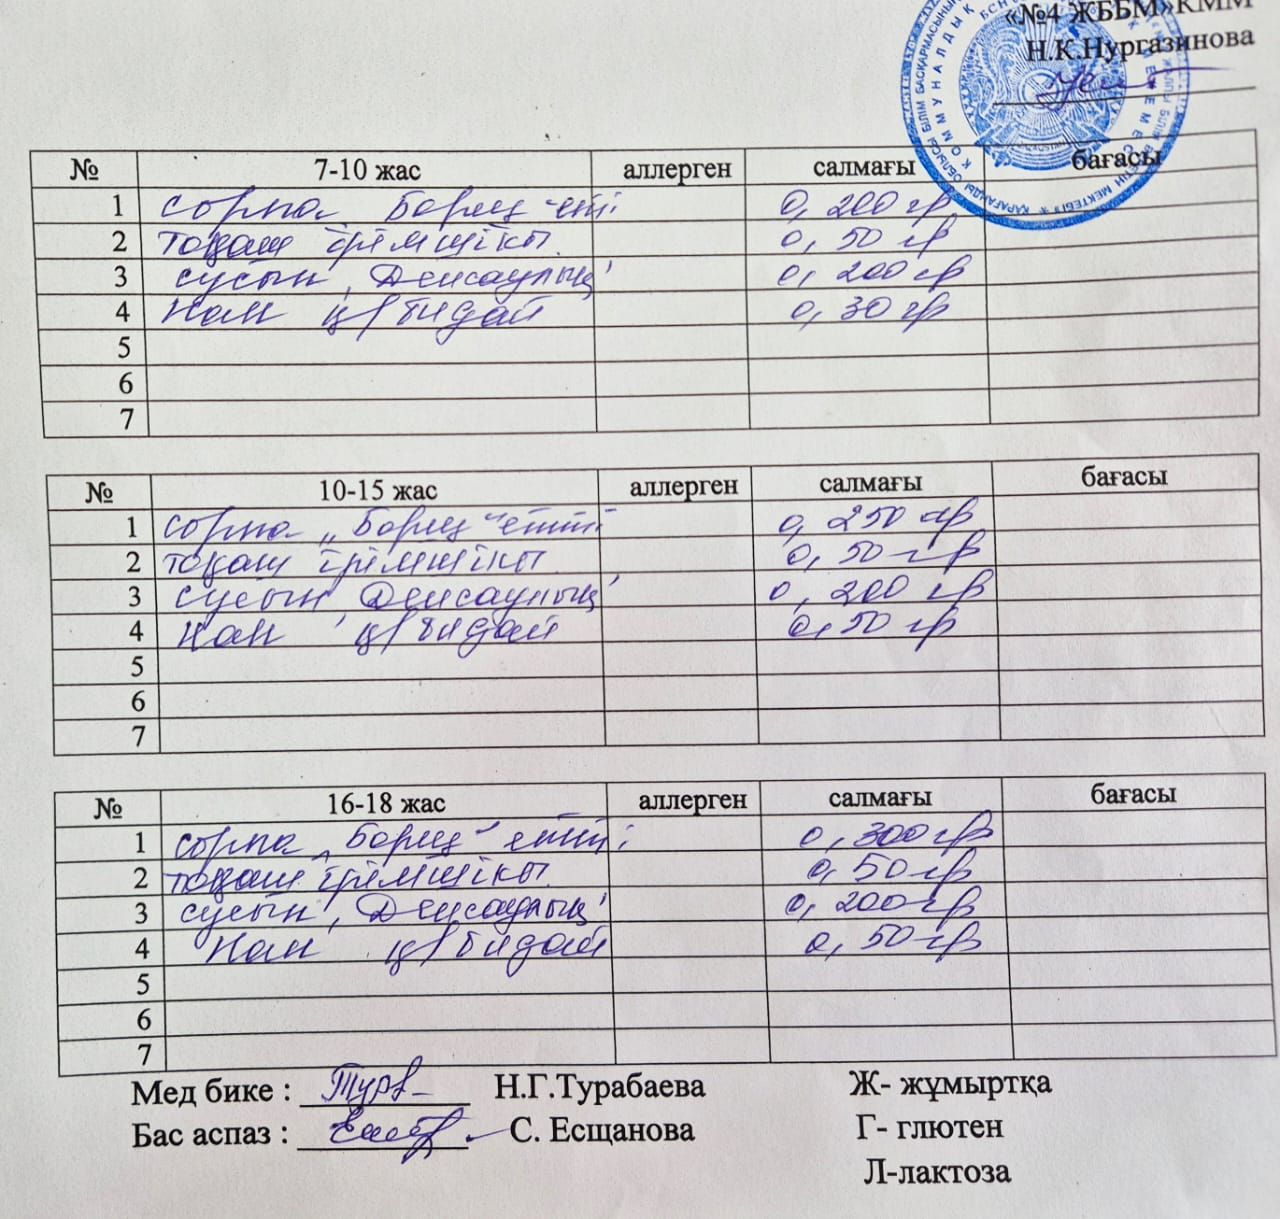 «№4 ЖББМ»КММ
Н.К.Нургазинова
№ 7-10 жас аллерген салмағы бағасы
1 сорпа Борщ етті 0,200 гр
2 тоқаш ірімшікпен 0,50 гр
3 сусын "Денсаулық" 0,200 гр
4 Нан ц/бидай 0,30 гр
5
6
7
№ 10-15 жас аллерген салмағы бағасы
1 сорпа "Борщ" етті 0,250 гр
2 тоқаш 0,50 гр
3 сусын "Денсаулық" 0,200 гр
4 Нан ц/бидай 0,50 гр
5
6
7
№ 16-18 жас аллерген салмағы бағасы
1 сорпа "Борщ" етті 0,300 гр
2 тоқаш 0,50 гр
3 сусын "Денсаулық" 0,200 гр
4 Нан ц/бидай 0,50 гр
5
6
7
Мед бике : Н.Г.Турабаева Ж- жұмыртқа
Бас аспаз : С. Есщанова Г- глютен
Л-лактоза